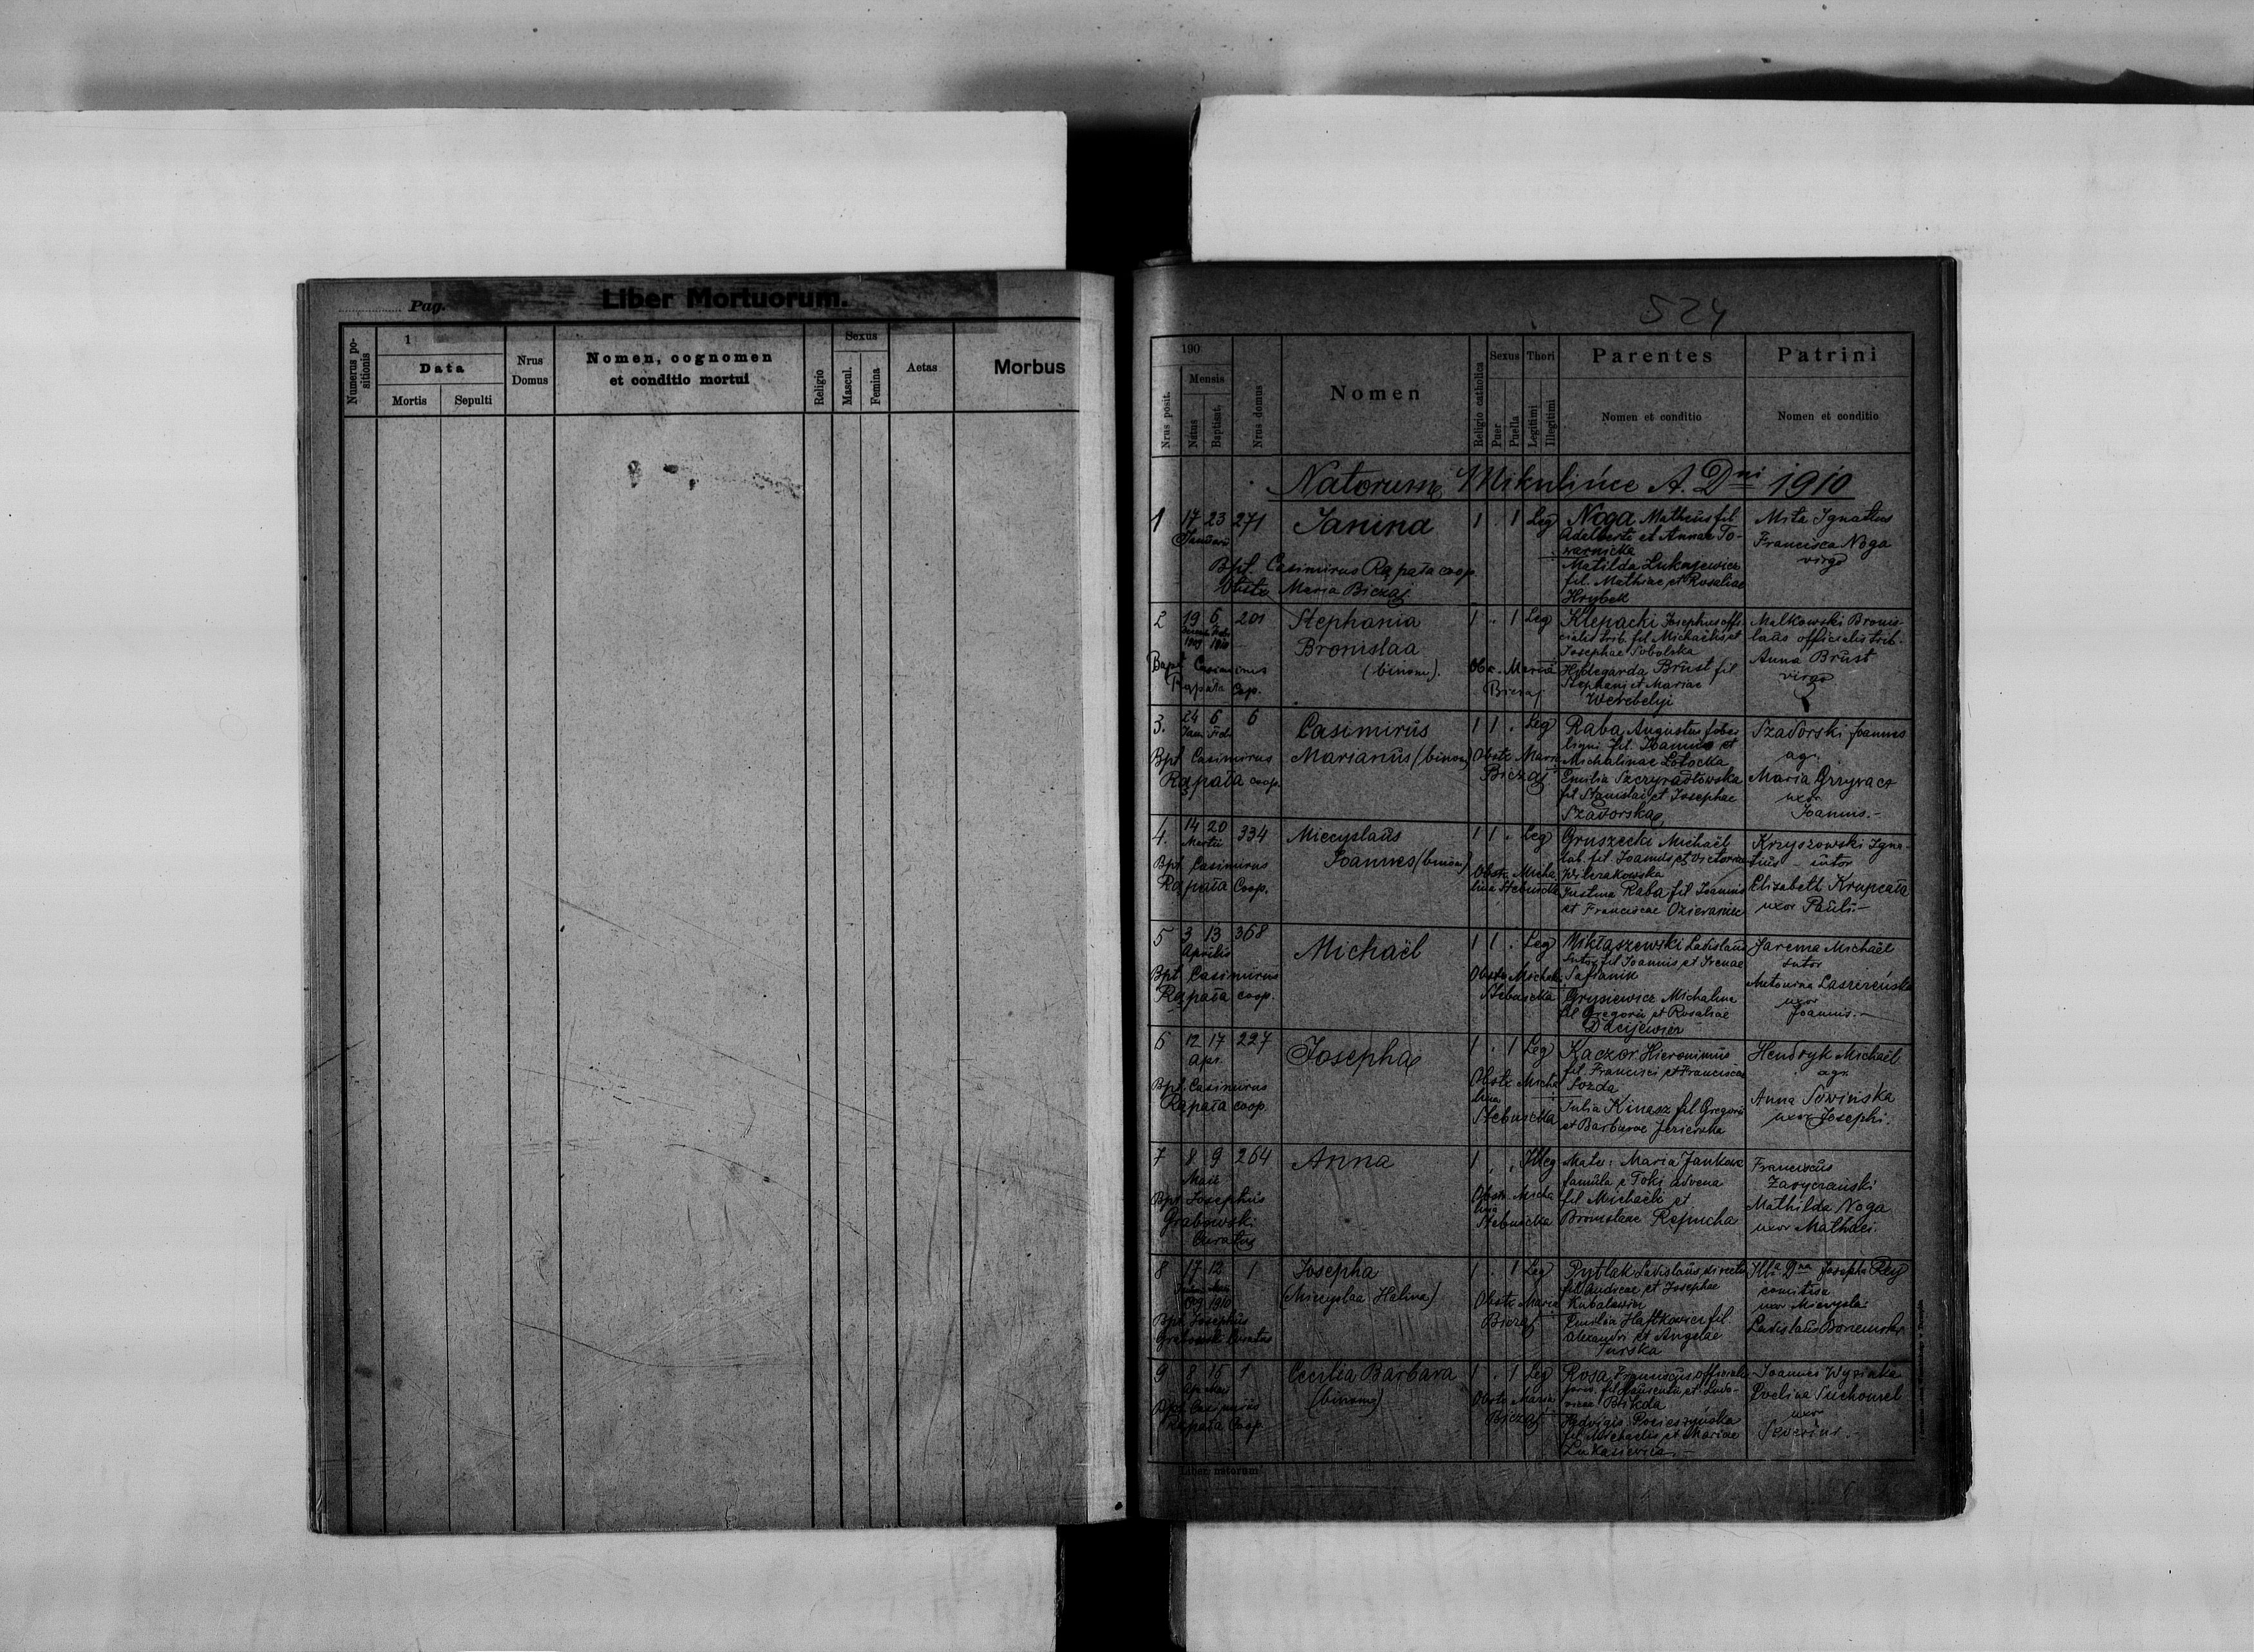 Pag.
Liber Mortuorum.
Numerus positionis
1
Data
Mortis
Sepulti
Nrus Domus
Nomen, cognomen
et conditio mortui
Religio
Sexus
Mascul.
Femina
Aetas
Morbus
524
Nrus posit.
190
Mensis
Natus
Baptisat.
Nrus domus
Nomen
Religio catholica
Sexus
Puer
Puella
Thori
Legitimi
Illegitimi
Parentes
Nomen et conditio
Patrini
Nomen et conditio
Natorum Mikulińce A. Dni 1910
1 17 23 271 Janina 1 . 1 Leg
Januarii
Bpt. Casimirus Rapała coop.
Obste Maria Biczaj
Noga Matheus fil.
Adalberti et Annae To-
warnicka
Matilda Lukasiewicz
fil. Mathiae et Rosaliae
Hrybek
Mita Ignatius
Francisca Noga
virgo
2 19 6 201 Stephania 1 . 1 Leg
1909 1910
Bronislaa
(binom).
Bapt Casimirus
Rapała Cop.
Obs. Maria
Biczaj
Klepacki Josephus offi-
cialis trib. fil Michaelis et
Josephae Sobolska
Hildegarda Brust fil
Stephani et Mariae
Werebelyi
Malkowski Bronis-
laus officialis trib.
Anna Brust
virgo
3. 24 6 6 Casimirus 1 1 . Leg
Jan Feb
Marianus (binom)
Bpt Casimirus
Rapała coop.
Obste Maria
Biczaj
Raba Augustus faber
ligni fil. Joannis et
Michalinae Lotocka
Emilia Szczyradłowska
fil Stanislai et Josephae
Szadorska
Szadorski Joannes
agr.
Maria Grzywacz
uxor
Joannis.-
4. 14 20 334 Miecyslaus 1 1 . Leg
Martii
Joannes (binom)
Bpt Casimirus
Rapała Coop.
Obste Micha
lina Stebnicka
Gruszecki Michaël
lab. fil. Joannis et Victoria
Justina Raba fil Joannis
et Franciscae
Krzyszowski Igna-
tius - sutor
Elisabeth Krupcała
uxor Pauli.-
5 3 13 368 Michaël 1 1 . Leg
Aprilis
Bpt Casimirus
Rapała coop.
Obste Michal.
Stebnicka
Miktaszewski Ladislaus
Sutor fil Joannis et Irenae
Safianik
Grysiewicz Michalina
fil Gregorii et Rosaliae
Dacijewicz
Jarema Michaël
sutor
Antonina
uxor
Joannis.-
6 12 17 227 Josepha 1 . 1 Leg
Apr.
Bpt. Casimirus
Rapała coop.
Obste Micha
lina
Stebnicka
Kaczor Hieronimus
fil. Francisci et Franciscae
Sozda
Julia Kinasz fil Gregorii
et Barbarae Jezierska
Hendryk Michaël
agr.
Anna Sowińska
uxor Josephi.
7 8 9 264 Anna 1 . . Illeg
Maii
Bpt Josephus
Grabowski
Curatus
Obste Micha
lina
Stebnicka
Mater: Maria Jankow
famula e Toki advena
fil Michaeli et
Bronislae Repucha
Franciscus
Zaryczański
Mathilda Noga
uxor Mathaei.
8 17 12 1 Josepha 1 . 1 Leg
1909 1910
(Miecyslaa Halina)
Bpt Josephus
Grabowski Curatus
Obste Maria
Biczaj
Pytlak Ladislaus
fil Andreae et Josephae
Kubalewicz
Emilia Haftkowicz fil
Alexandri et Angelae
Turska
Illa Dna Josepha Rey
comitissa
uxor Miecysla:
Ladislaus
9 8 15 1 Cecilia Barbara 1 . 1 Leg
(binom)
Bpt Casimirus
Rapała Coop.
Obste Maria
Biczaj
Rosa Franciscus
et Ludo-
vicae Bikda
Hedvigis
fil Michaelis et Mariae
Lukasiewicz.-
Joannes
Evelina Suchomel
uxor
Severini.-
Liber natorum